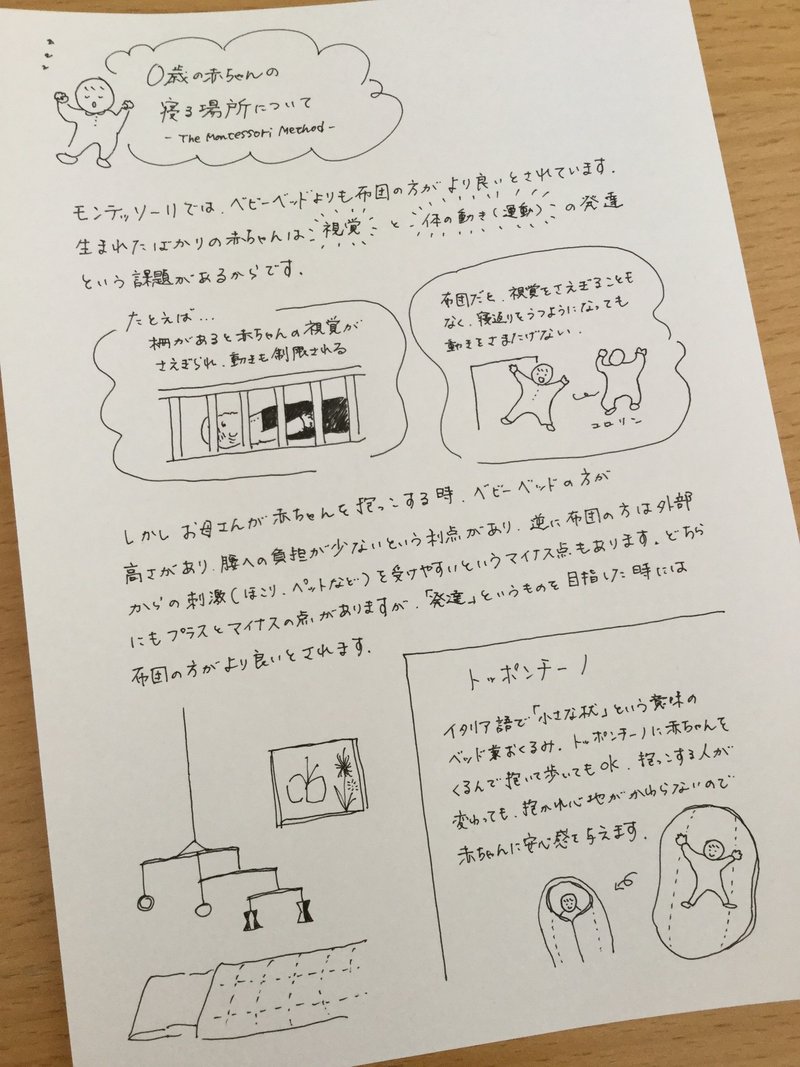 zzz
0歳の赤ちゃんの
寝る場所について
- The Montessori Method -
モンテッソーリでは、ベビーベッドよりも布団の方がより良いとされています。
生まれたばかりの赤ちゃんは視覚と体の動き(運動)の発達
という課題があるからです。
たとえば…
柵があると赤ちゃんの視覚が
さえぎられ、動きも制限される
布団だと、視覚をさえぎることも
なく、寝返りをうつようになっても
動きをさまたげない。
コロリン
しかしお母さんが赤ちゃんを抱っこする時、ベビーベッドの方が
高さがあり、腰への負担が少ないという利点があり、逆に布団の方は外部
からの刺激(ほこり、ペットなど)を受けやすいというマイナス点もあります。どちら
にもプラスとマイナスの点がありますが、「発達」というものを目指した時には
布団の方がより良いとされます。
トッポンチーノ
イタリア語で「小さな枕」という意味の
ベッド兼おくるみ。トッポンチーノに赤ちゃんを
くるんで抱いて歩いてもOK。抱っこする人が
変わっても、抱かれ心地がかわらないので
赤ちゃんに安心感を与えます。